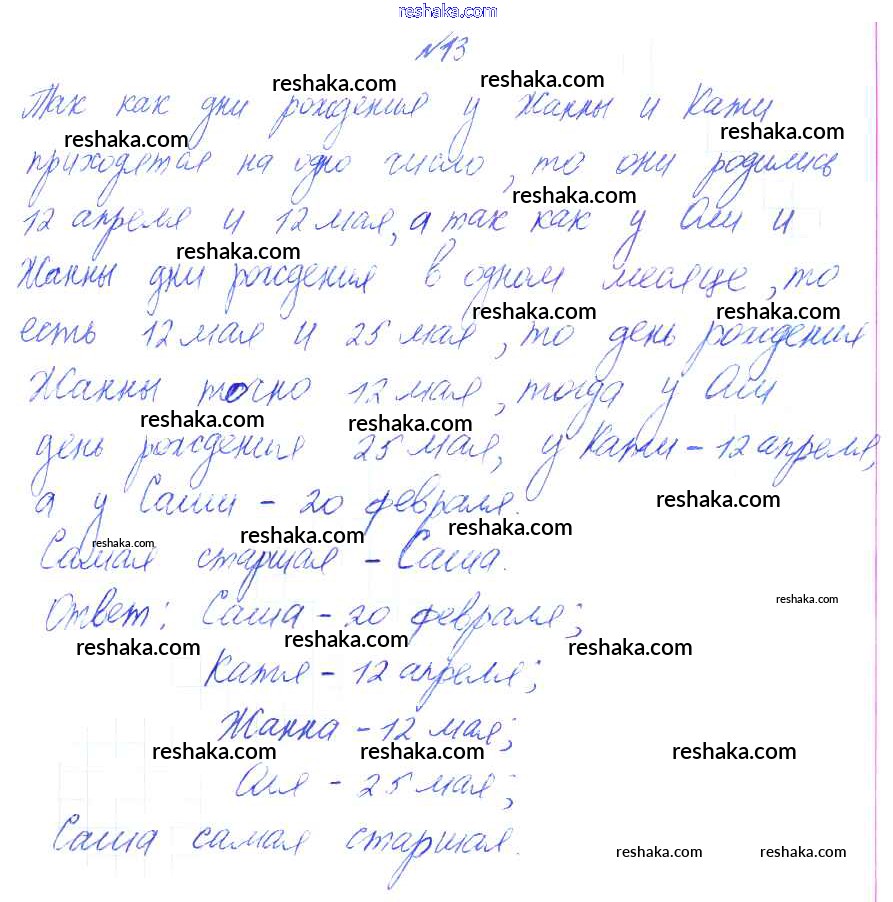 reshaka.com
№13
reshaka.com reshaka.com
Так как дни рождения у Жанны и Кати
reshaka.com reshaka.com
приходятся на одно число, то они родились
reshaka.com
12 апреля и 12 мая, а так как у Оли и
reshaka.com
Жанны дни рождения в одном месяце, то
reshaka.com reshaka.com
есть 12 мая и 25 мая, то день рождения
Жанны точно 12 мая, тогда у Оли
reshaka.com reshaka.com
день рождения 25 мая, у Кати - 12 апреля,
а у Саши - 20 февраля.
reshaka.com
reshaka.com reshaka.com reshaka.com
Самая старшая - Саша.
reshaka.com
Ответ: Саша - 20 февраля;
reshaka.com reshaka.com reshaka.com
Катя - 12 апреля;
Жанна - 12 мая;
reshaka.com reshaka.com reshaka.com
Оля - 25 мая;
Саша самая старшая.
reshaka.com reshaka.com